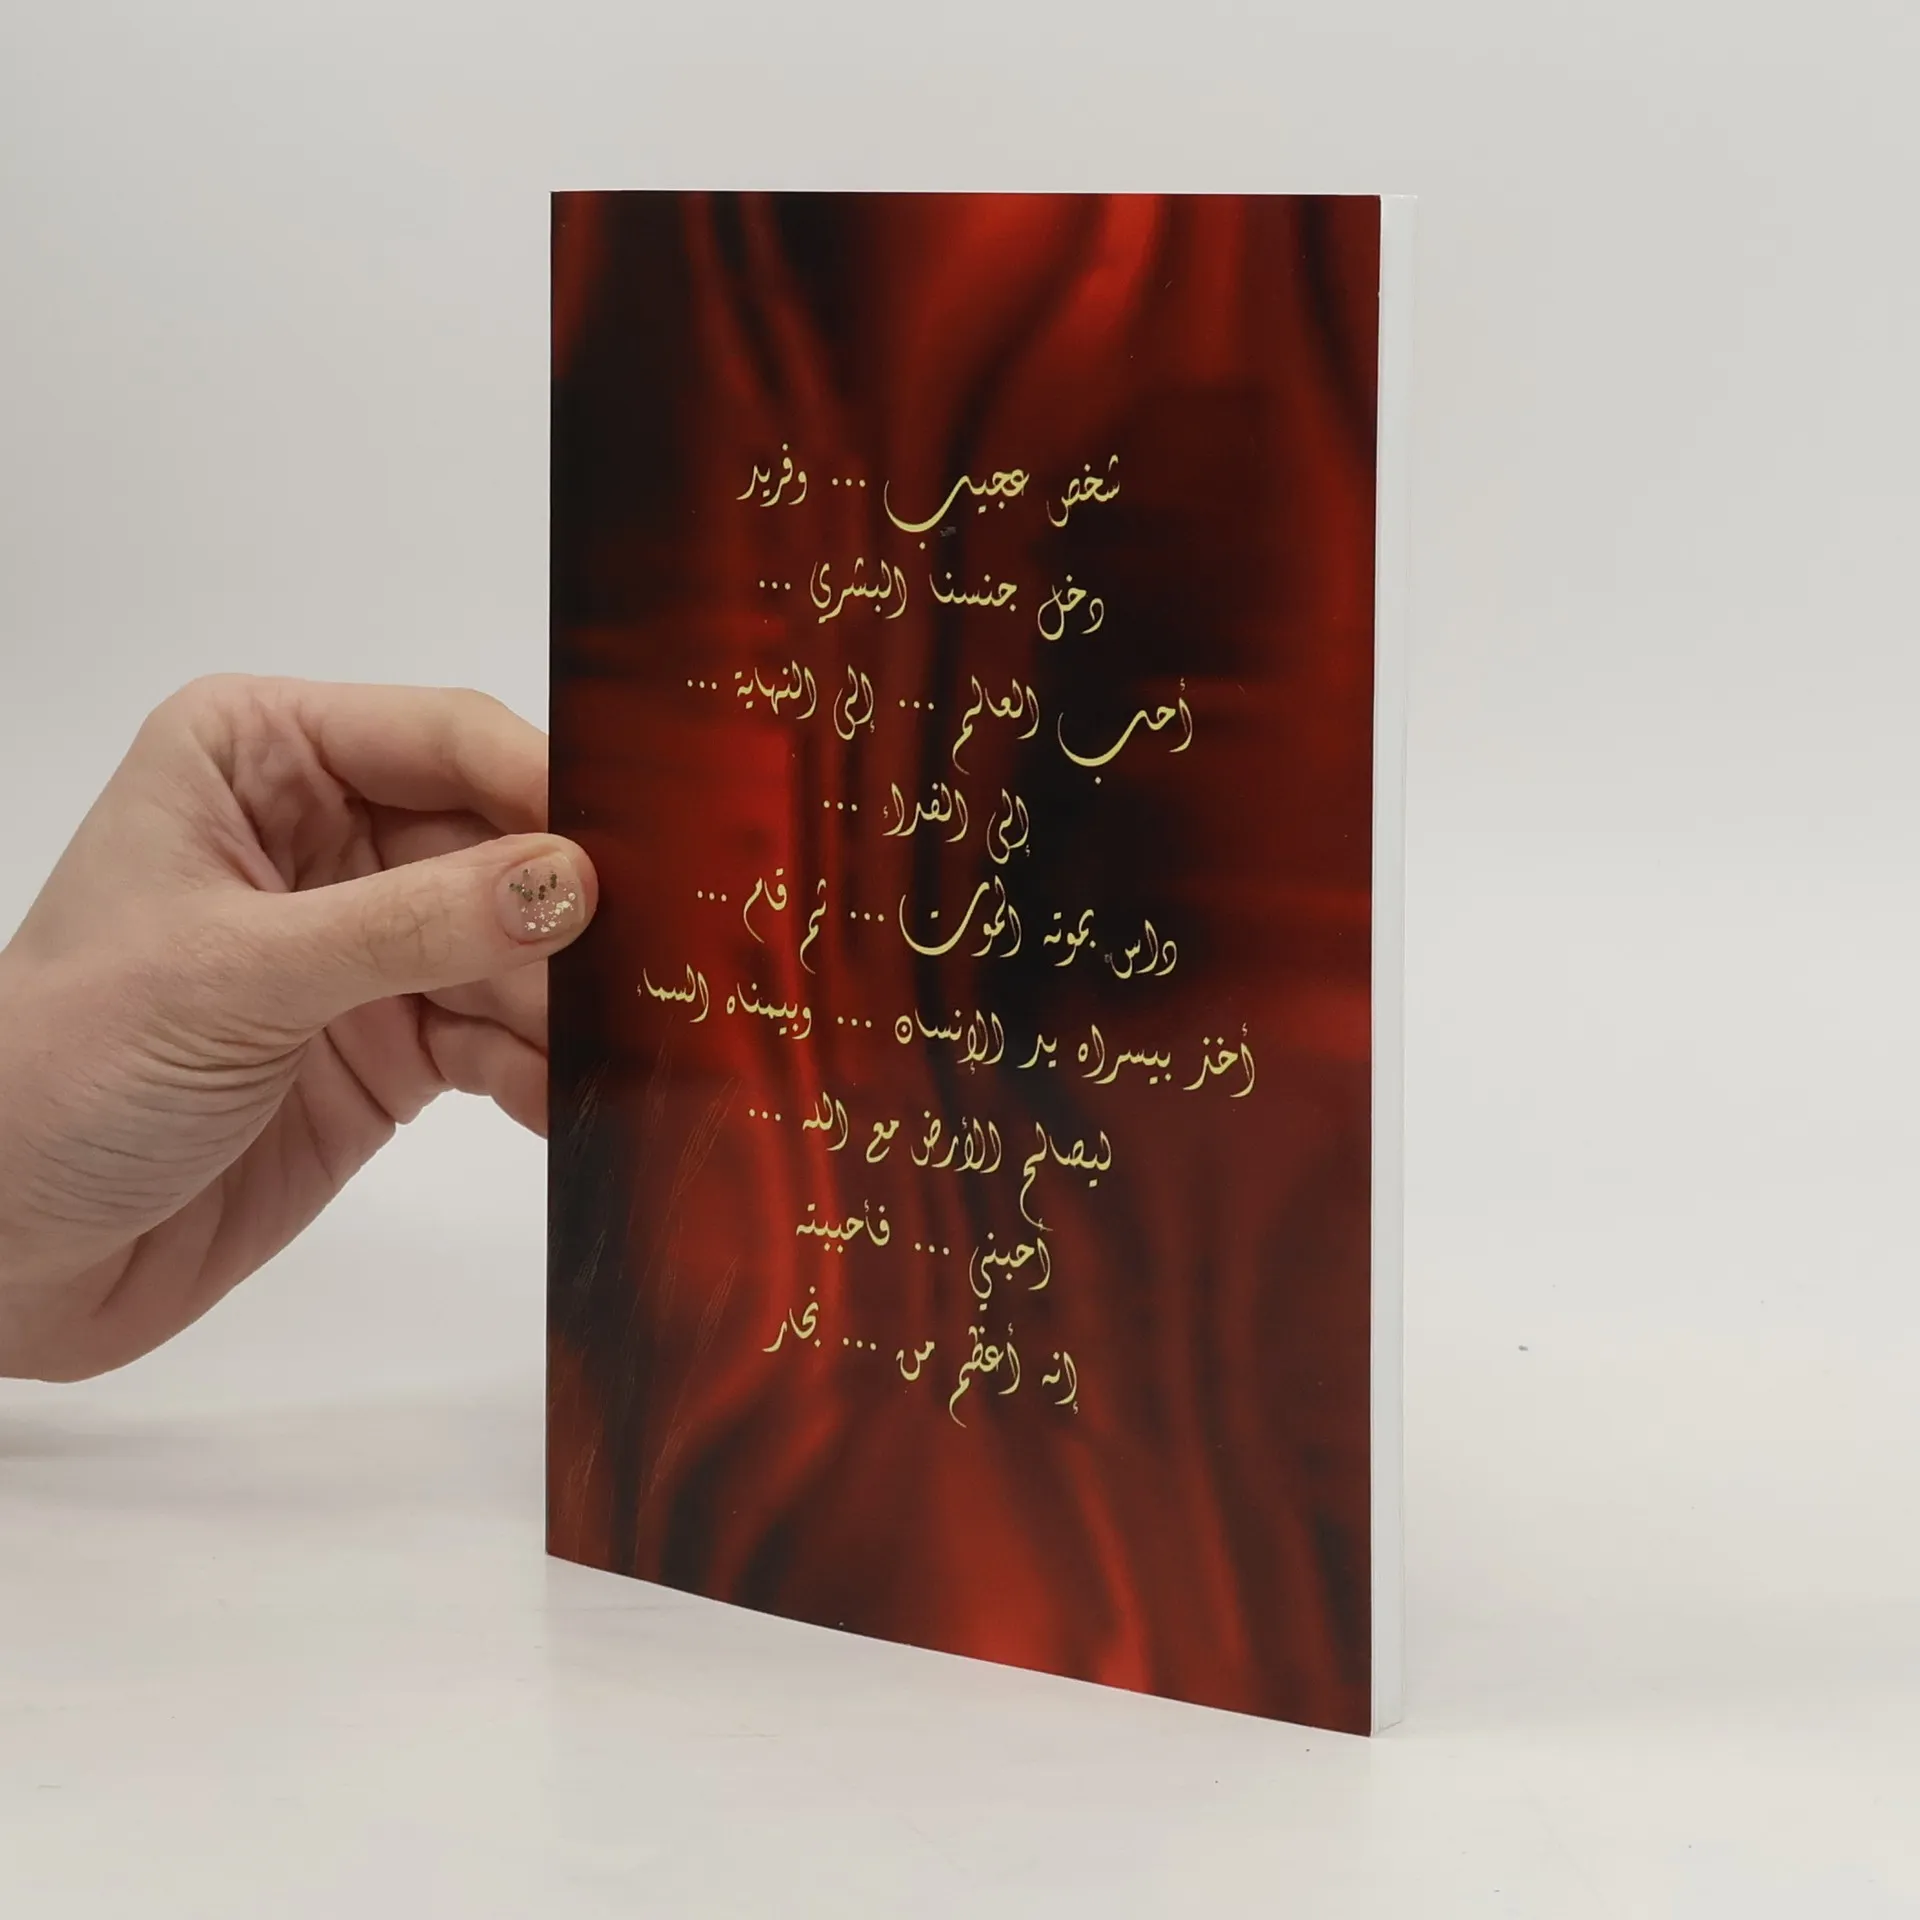 شخص عجيب ... وفريد
دخل جنسنا البشري ...
أحب العالم ... إلى النهاية ...
إلى الفداء ...
داس بموته الموت ... ثم قام ...
أخذ بيسراه يد الإنسان ... وبيمناه السماء
ليصالح الأرض مع الله ...
أحبني ... فأحببته
إنه أعظم من ... نجار